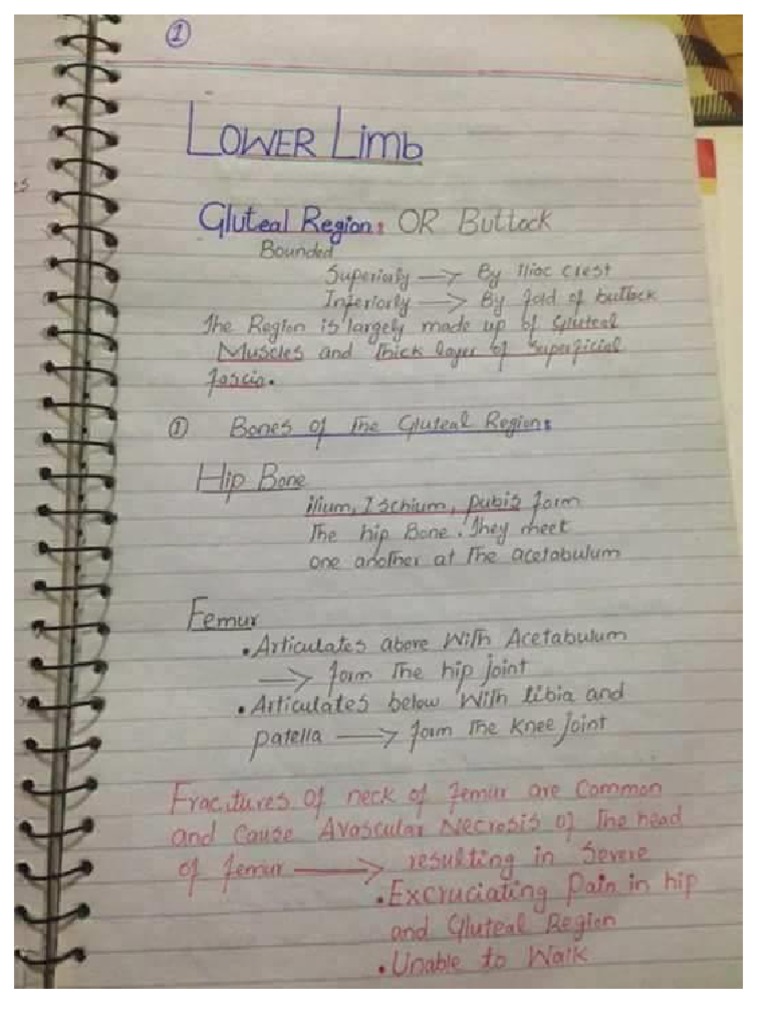 1
LOWER Limb
Gluteal Region: OR Buttock
Bounded
Superiorly → By Iliac crest
Inferiorly → By fold of buttock
The Region is largely made up of Gluteal
Muscles and Thick layer of Superficial
fascia.
① Bones of The Gluteal Region:
Hip Bone
ilium, Ischium, pubis form
The hip Bone. They meet
one another at The acetabulum
Femur
• Articulates above With Acetabulum
→ form The hip joint
• Articulates below With tibia and
patella → form The Knee joint
Fractures of neck of femur are Common
and Cause Avascular Necrosis of The head
of femur → resulting in Severe
• Excruciating Pain in hip
and Gluteal Region
• Unable to Walk